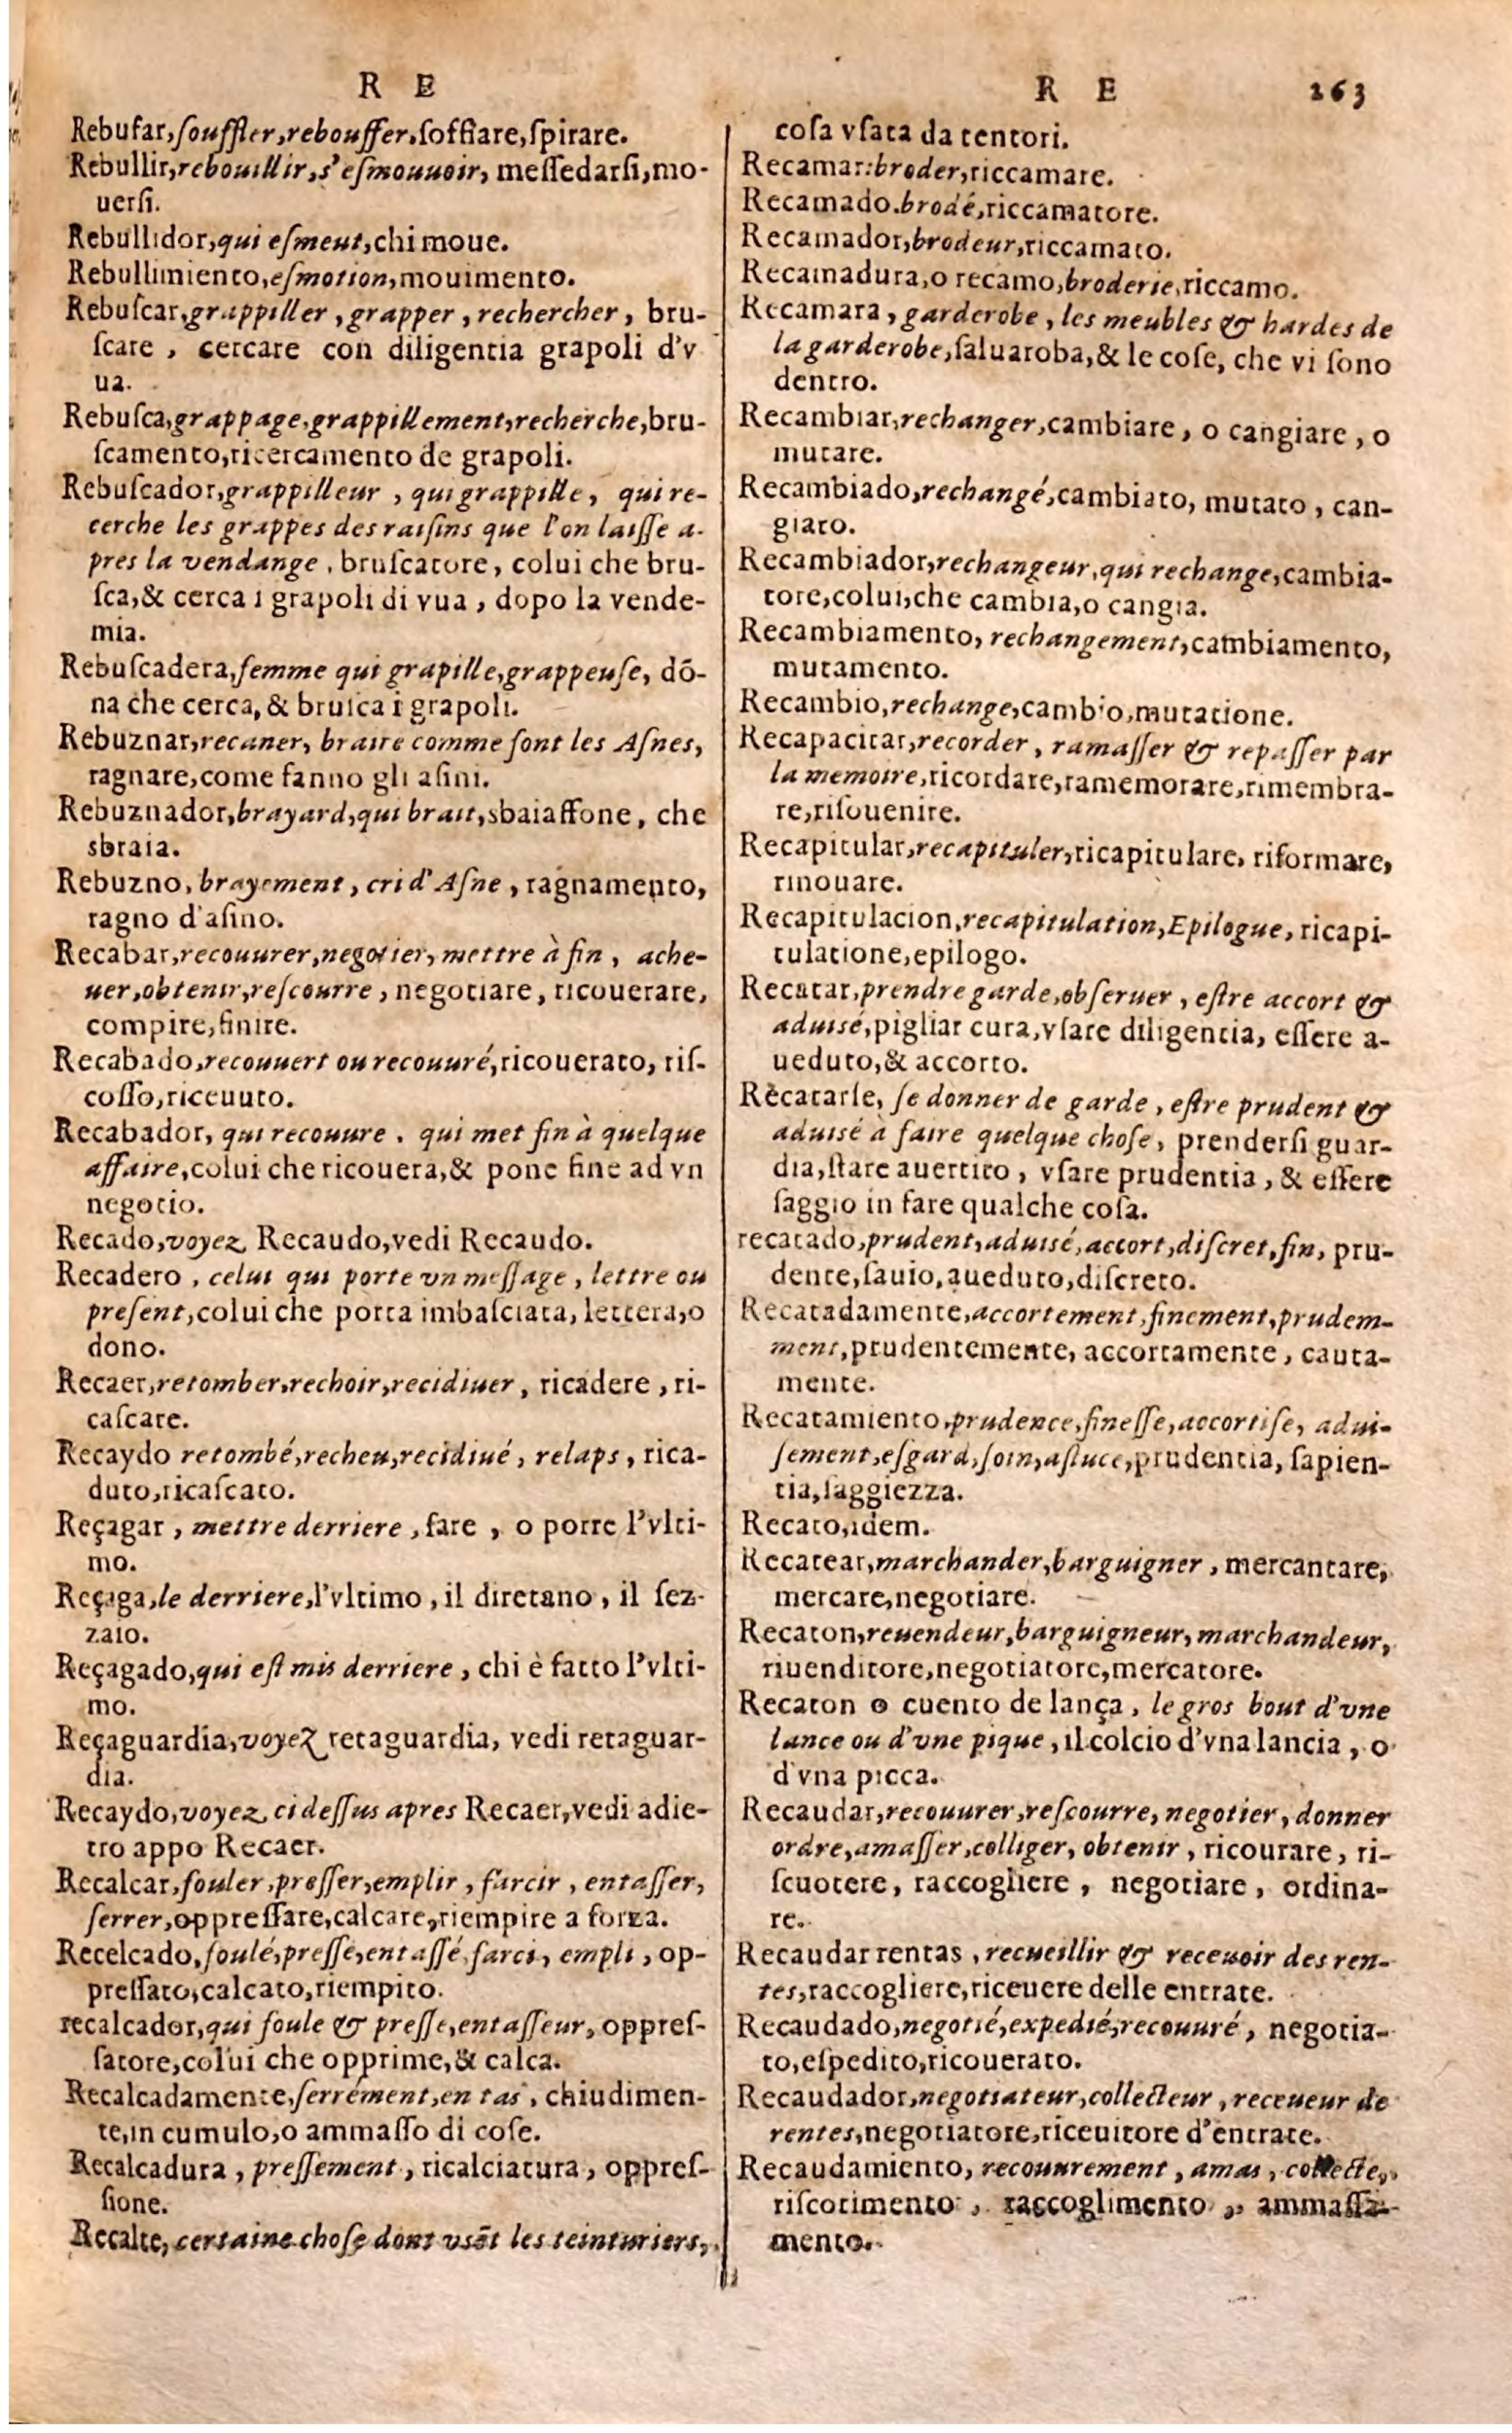 R E
Rebufar,ſouffler,rebouffer,ſoffiare,ſpirare.
Rebullir,rebouillir,s'eſmouuoir, meſſedarſi,mo-
uerſi.
Rebullidor,qui eſmeut,chi moue.
Rebullimiento,eſmotion,mouimento.
Rebuſcar,grappiller , grapper , rechercher , bru-
ſcare , cercare con diligentia grapoli d'v
ua.
Rebuſca,grappage,grappillement,recherche,bru-
ſcamento,ricercamento de grapoli.
Rebuſcador,grappilleur , qui grappille , qui re-
cerche les grappes des raiſins que l'on laiſſe a-
pres la vendange , bruſcatore , colui che bru-
ſca,& cerca i grapoli di vua , dopo la vende-
mia.
Rebuſcadera,femme qui grapille,grappeuſe, dō-
na che cerca, & bruſca i grapoli.
Rebuznar,recaner, braire comme font les Aſnes,
ragnare,come fanno gli aſini.
Rebuznador,brayard,qui brait,sbaiaffone, che
sbraia.
Rebuzno, brayement , cri d'Aſne , ragnamento,
ragno d'aſino.
Recabar,recouurer,negotier, mettre à fin , ache-
uer,obtenir,reſcourre , negotiare, ricouerare,
compire,finire.
Recabado,recouuert ou recouuré,ricouerato, riſ-
coſſo,riceuuto.
Recabador, qui recouure , qui met fin à quelque
affaire,colui che ricouera,& pone fine ad vn
negotio.
Recado,voyez Recaudo,vedi Recaudo.
Recadero , celui qui porte vn meſſage , lettre ou
preſent,colui che porta imbaſciata, lettera,o
dono.
Recaer,retomber,rechoir,recidiuer , ricadere , ri-
caſcare.
Recaydo retombé,recheu,recidiué , relaps , rica-
duto,ricaſcato.
Reçagar , mettre derriere , fare , o porre l'vlti-
mo.
Reçaga,le derriere,l'vltimo , il diretano , il ſez-
zaio.
Reçagado,qui eſt mis derriere , chi è fatto l'vlti-
mo.
Reçaguardia,voyez retaguardia, vedi retaguar-
dia.
Recaydo,voyez ci deſſus apres Recaer,vedi adie-
tro appo Recaer.
Recalcar,fouler,preſſer,emplir , farcir , entaſſer,
ſerrer,oppreſſare,calcare,riempire a forza.
Recelcado,foulé,preſſé,entaſſé,farci, empli , op-
preſſato,calcato,riempito.
recalcador,qui foule & preſſe,entaſſeur, oppreſ-
ſatore,colui che opprime,& calca.
Recalcadamente,ſerrément,en tas , chiudimen-
te,in cumulo,o ammaſſo di coſe.
Recalcadura , preſſement , ricalciatura , oppreſ-
ſione.
Recalte, certaine choſe dont vsēt les teinturiers,
R E 263
coſa vſata da tentori.
Recamar:broder,riccamare.
Recamado.brodé,riccamatore.
Recamador,brodeur,riccamato.
Recamadura,o recamo,broderie,riccamo.
Recamara , garderobe , les meubles & hardes de
la garderobe,ſaluaroba,& le coſe, che vi ſono
dentro.
Recambiar,rechanger,cambiare , o cangiare , o
mutare.
Recambiado,rechangé,cambiato, mutato , can-
giato.
Recambiador,rechangeur,qui rechange,cambia-
tore,colui,che cambia,o cangia.
Recambiamento, rechangement,cambiamento,
mutamento.
Recambio,rechange,cambio,mutatione.
Recapacitar,recorder , ramaſſer & repaſſer par
la memoire,ricordare,ramemorare,rimembra-
re,riſouenire.
Recapitular,recapituler,ricapitulare, riformare,
rinouare.
Recapitulacion,recapitulation,Epilogue, ricapi-
tulatione,epilogo.
Recatar,prendre garde,obſeruer , eſtre accort &
aduisé,pigliar cura,vſare diligentia, eſſere a-
ueduto,& accorto.
Recatarſe, ſe donner de garde , eſtre prudent &
aduisé à faire quelque choſe, prenderſi guar-
dia,ſtare auertito , vſare prudentia , & eſſere
ſaggio in fare qualche coſa.
recatado,prudent,aduisé,accort,diſcret,fin, pru-
dente,ſauio,aueduto,diſcreto.
Recatadamente,accortement,finement,prudem-
ment,prudentemente, accortamente , cauta-
mente.
Recatamiento,prudence,fineſſe,accortiſe, adui-
ſement,eſgard,ſoin,aſtuce,prudentia, ſapien-
tia,ſaggiezza.
Recato,idem.
Recatear,marchander,barguigner , mercantare,
mercare,negotiare.
Recaton,reuendeur,barguigneur, marchandeur,
riuenditore,negotiatore,mercatore.
Recaton o cuento de lança , le gros bout d'vne
lance ou d'vne pique , il colcio d'vna lancia , o
d'vna picca.
Recaudar,recouurer,reſcourre, negotier, donner
ordre,amaſſer,colliger, obtenir , ricourare , ri-
ſcuotere, raccogliere , negotiare , ordina-
re.
Recaudar rentas , recueillir & receuoir des ren-
tes,raccogliere,riceuere delle entrate.
Recaudado,negotié,expedié,recouuré , negotia-
to,eſpedito,ricouerato.
Recaudador,negotiateur,collecteur , receueur de
rentes,negotiatore,riceuitore d'entrate.
Recaudamiento, recouurement , amas , collecte,
riſcotimento , raccoglimento , ammaſſa-
mento.